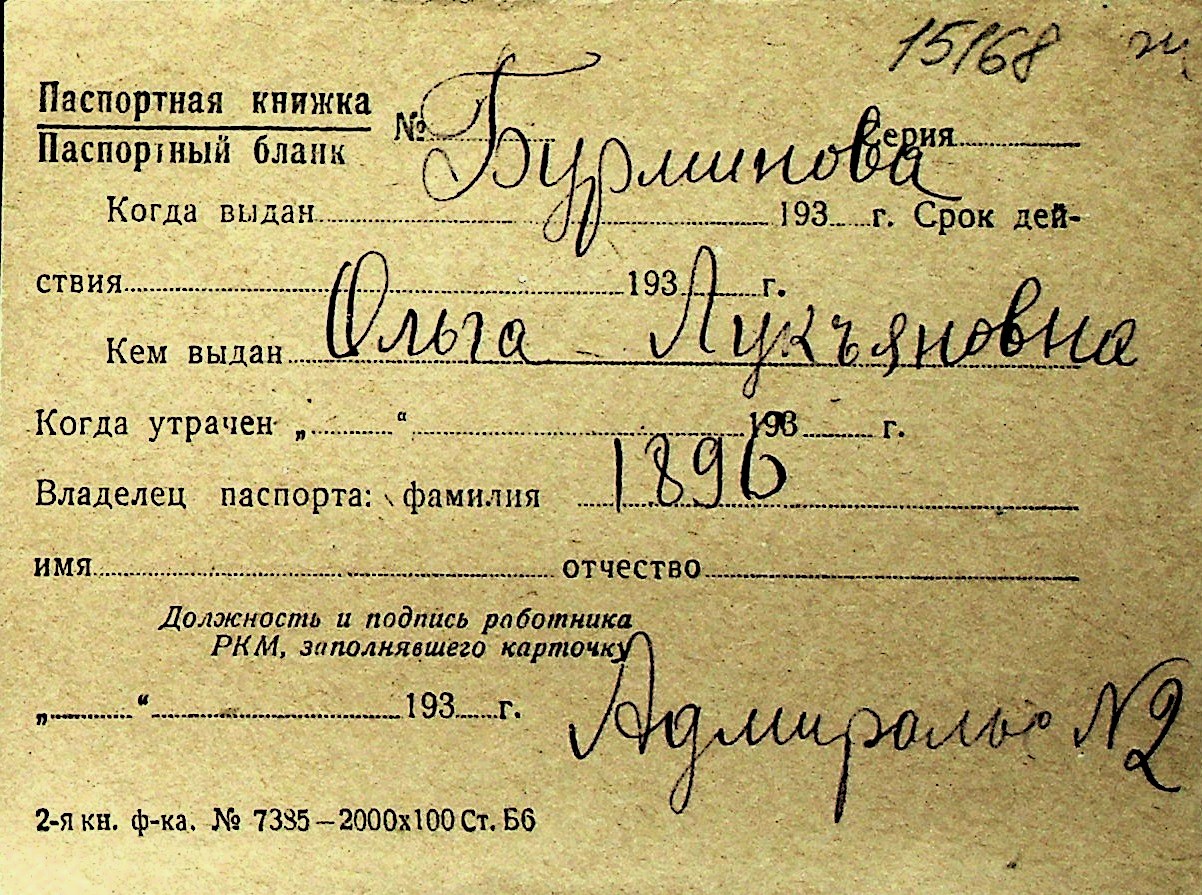 15168 ж
Паспортная книжка
Паспортный бланк
№ Бурминова Серия
Когда выдан 193 г. Срок дей-
ствия 193 г.
Кем выдан Ольга Лукъяновна
Когда утрачен „ “ 193 г.
Владелец паспорта: фамилия 1896
имя отчество
Должность и подпись работника
РКМ, заполнявшего карточку
„ “ 193 г. Адмираль N2
2-я кн. ф-ка. № 7385–2000х100 Ст. Б6